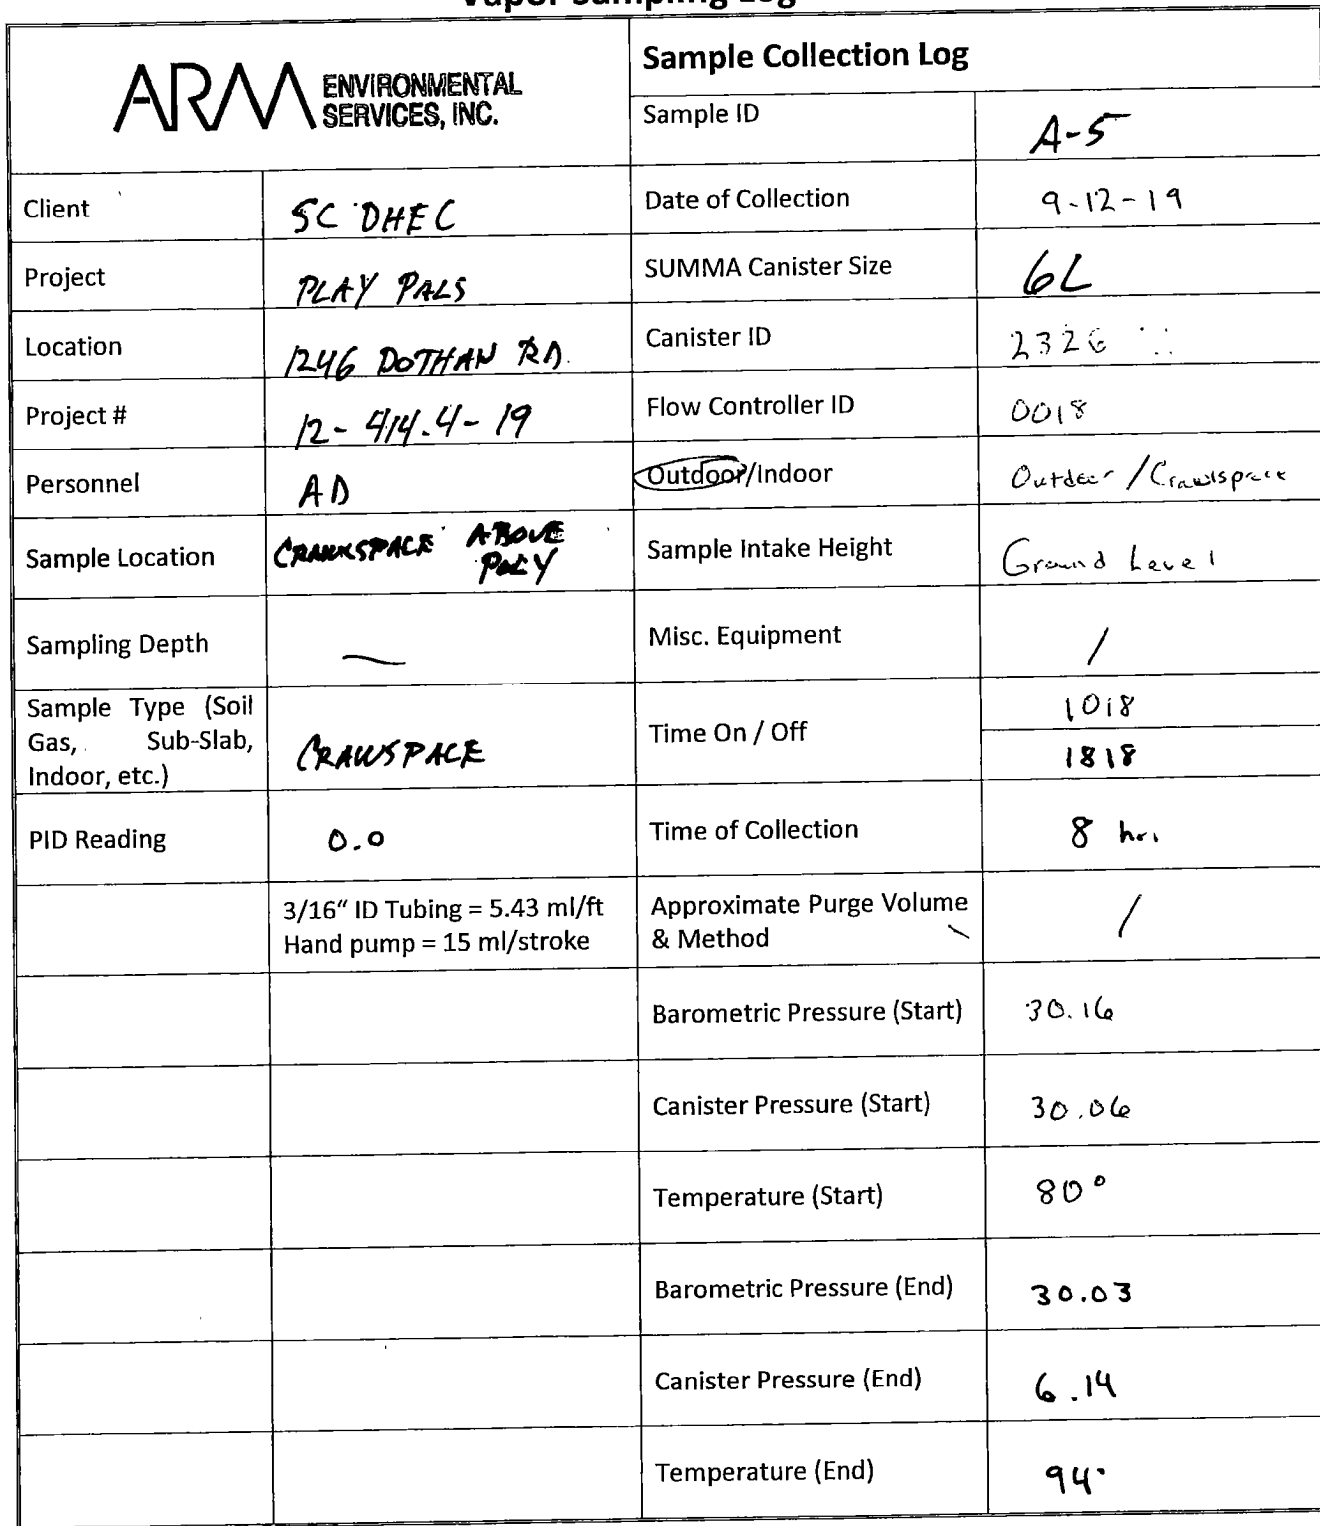 ARM ENVIRONMENTAL
SERVICES, INC.
Sample Collection Log
Sample ID A-5
Client SC DHEC
Date of Collection 9-12-19
Project PLAY PALS
SUMMA Canister Size 6L
Location 1246 DOTHAN RD.
Canister ID 2326
Project # 12-414.4-19
Flow Controller ID 0018
Personnel AD
Outdoor/Indoor Outdoor/Crawlspace
Sample Location CRAWLSPACE ABOVE
POLY
Sample Intake Height Ground Level
Sampling Depth —
Misc. Equipment /
Sample Type (Soil
Gas, Sub-Slab,
Indoor, etc.) CRAWSPACE
Time On / Off 1018
1818
PID Reading 0.0
Time of Collection 8 hr.
3/16" ID Tubing = 5.43 ml/ft
Hand pump = 15 ml/stroke
Approximate Purge Volume
& Method /
Barometric Pressure (Start) 30.16
Canister Pressure (Start) 30.06
Temperature (Start) 80°
Barometric Pressure (End) 30.03
Canister Pressure (End) 6.14
Temperature (End) 94°